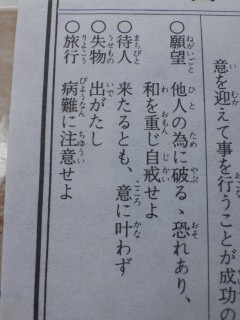 意を迎えて事を行うことが成功の
○願望 他人の為に破るゝ恐れあり、
和を重じ自戒せよ
○待人 来たるとも、意に叶わず
○失物 出がたし
○旅行 病難に注意せよ